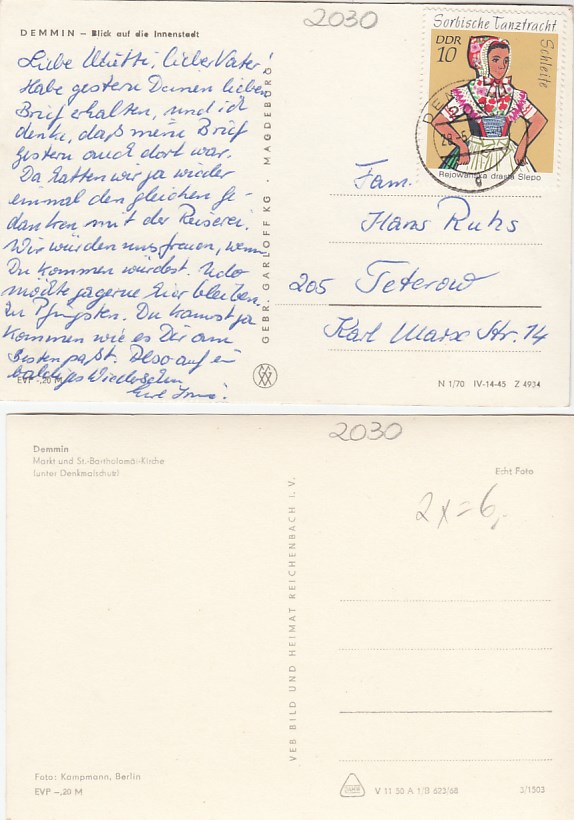 2030
DEMMIN – Blick auf die Innenstadt
Liebe Mutti, lieber Vater!
Habe gestern Deinen lieben
Brief erhalten, und ich
denke, daß mein Brief
gestern auch dort war.
Da hatten wir ja wieder
einmal den gleichen Ge-
danken mit der Reiserei.
Wir würden uns freuen, wenn
Du kommen würdest. Udo
möchte ja gerne hier bleiben.
Zu Pfingsten. Du kannst ja
kommen wie es Dir am
Besten paßt. Also auf ein
baldiges Wiedersehen
EVP –,20 M
GEBR. GARLOFF KG · MAGDEBURG
Sorbische Tanztracht
Schleife
DDR
10
Rejowanska drasta Slepo
DEMMIN
Fam.
Hans Ruhs
205 Teterow
Karl Marx Str. 14
N 1/70 IV-14-45 Z 4934
2030
Demmin
Markt und St.-Bartholomäi-Kirche
(unter Denkmalschutz)
Echt Foto
2x=6,-
VEB BILD UND HEIMAT REICHENBACH i. V.
Foto: Kampmann, Berlin
EVP –,20 M
V 11 50 A 1/II 623/68
3/1503